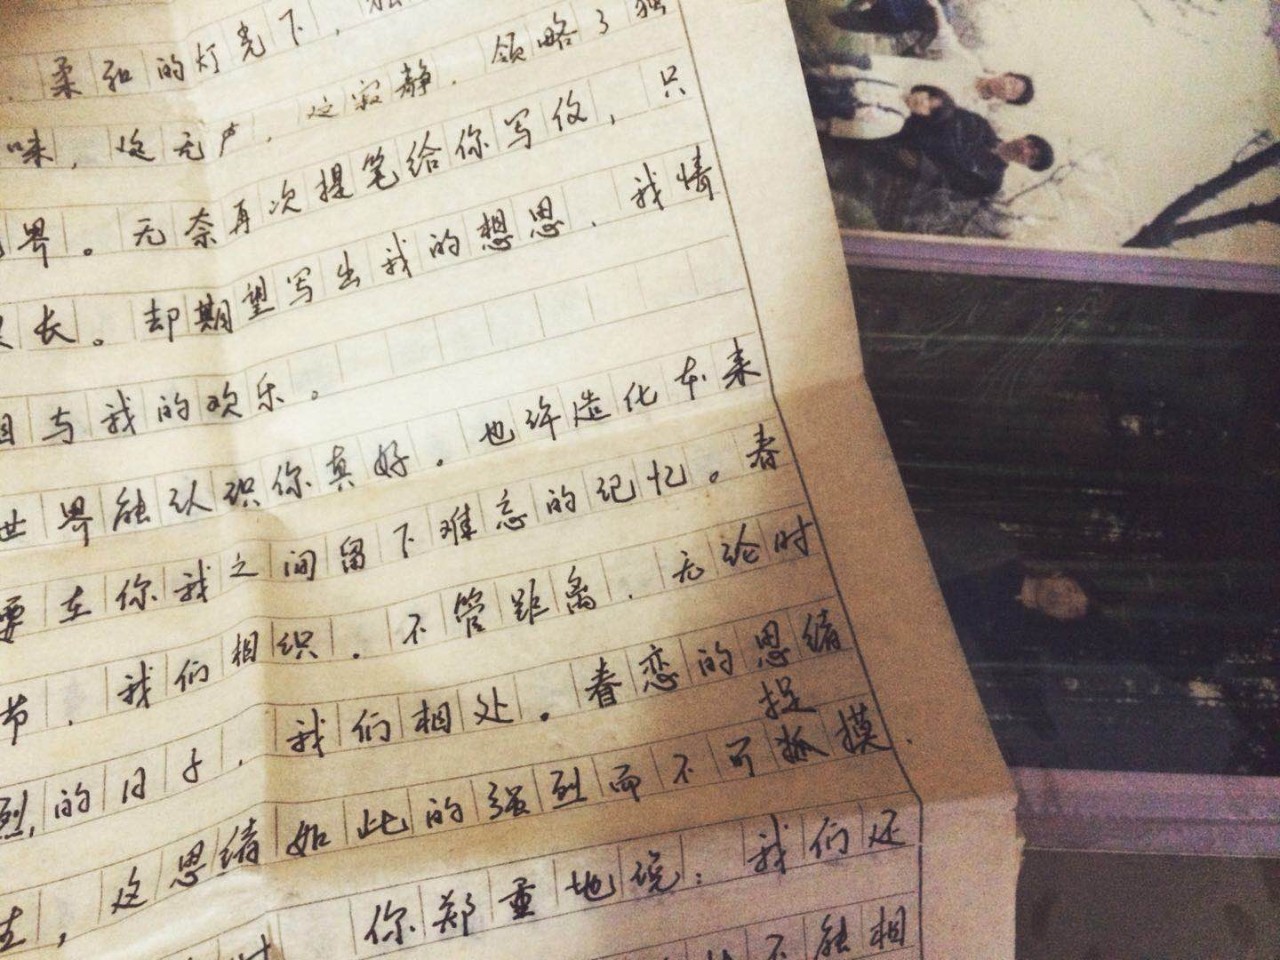 柔和的灯光下，
味，这无声，这寂静，领略了独
界。无奈再次提笔给你写仪，只
长。却期望写出我的想思，我情
与我的欢乐。
世界能认识你真好。也许造化本来
要在你我之间留下难忘的记忆。春
节，我们相织。不管距离，无论时
烈的日子，我们相处。眷恋的思绪
生，这思绪如此的强烈而不可捉摸.
时 你郑重地说：我们还
不能相